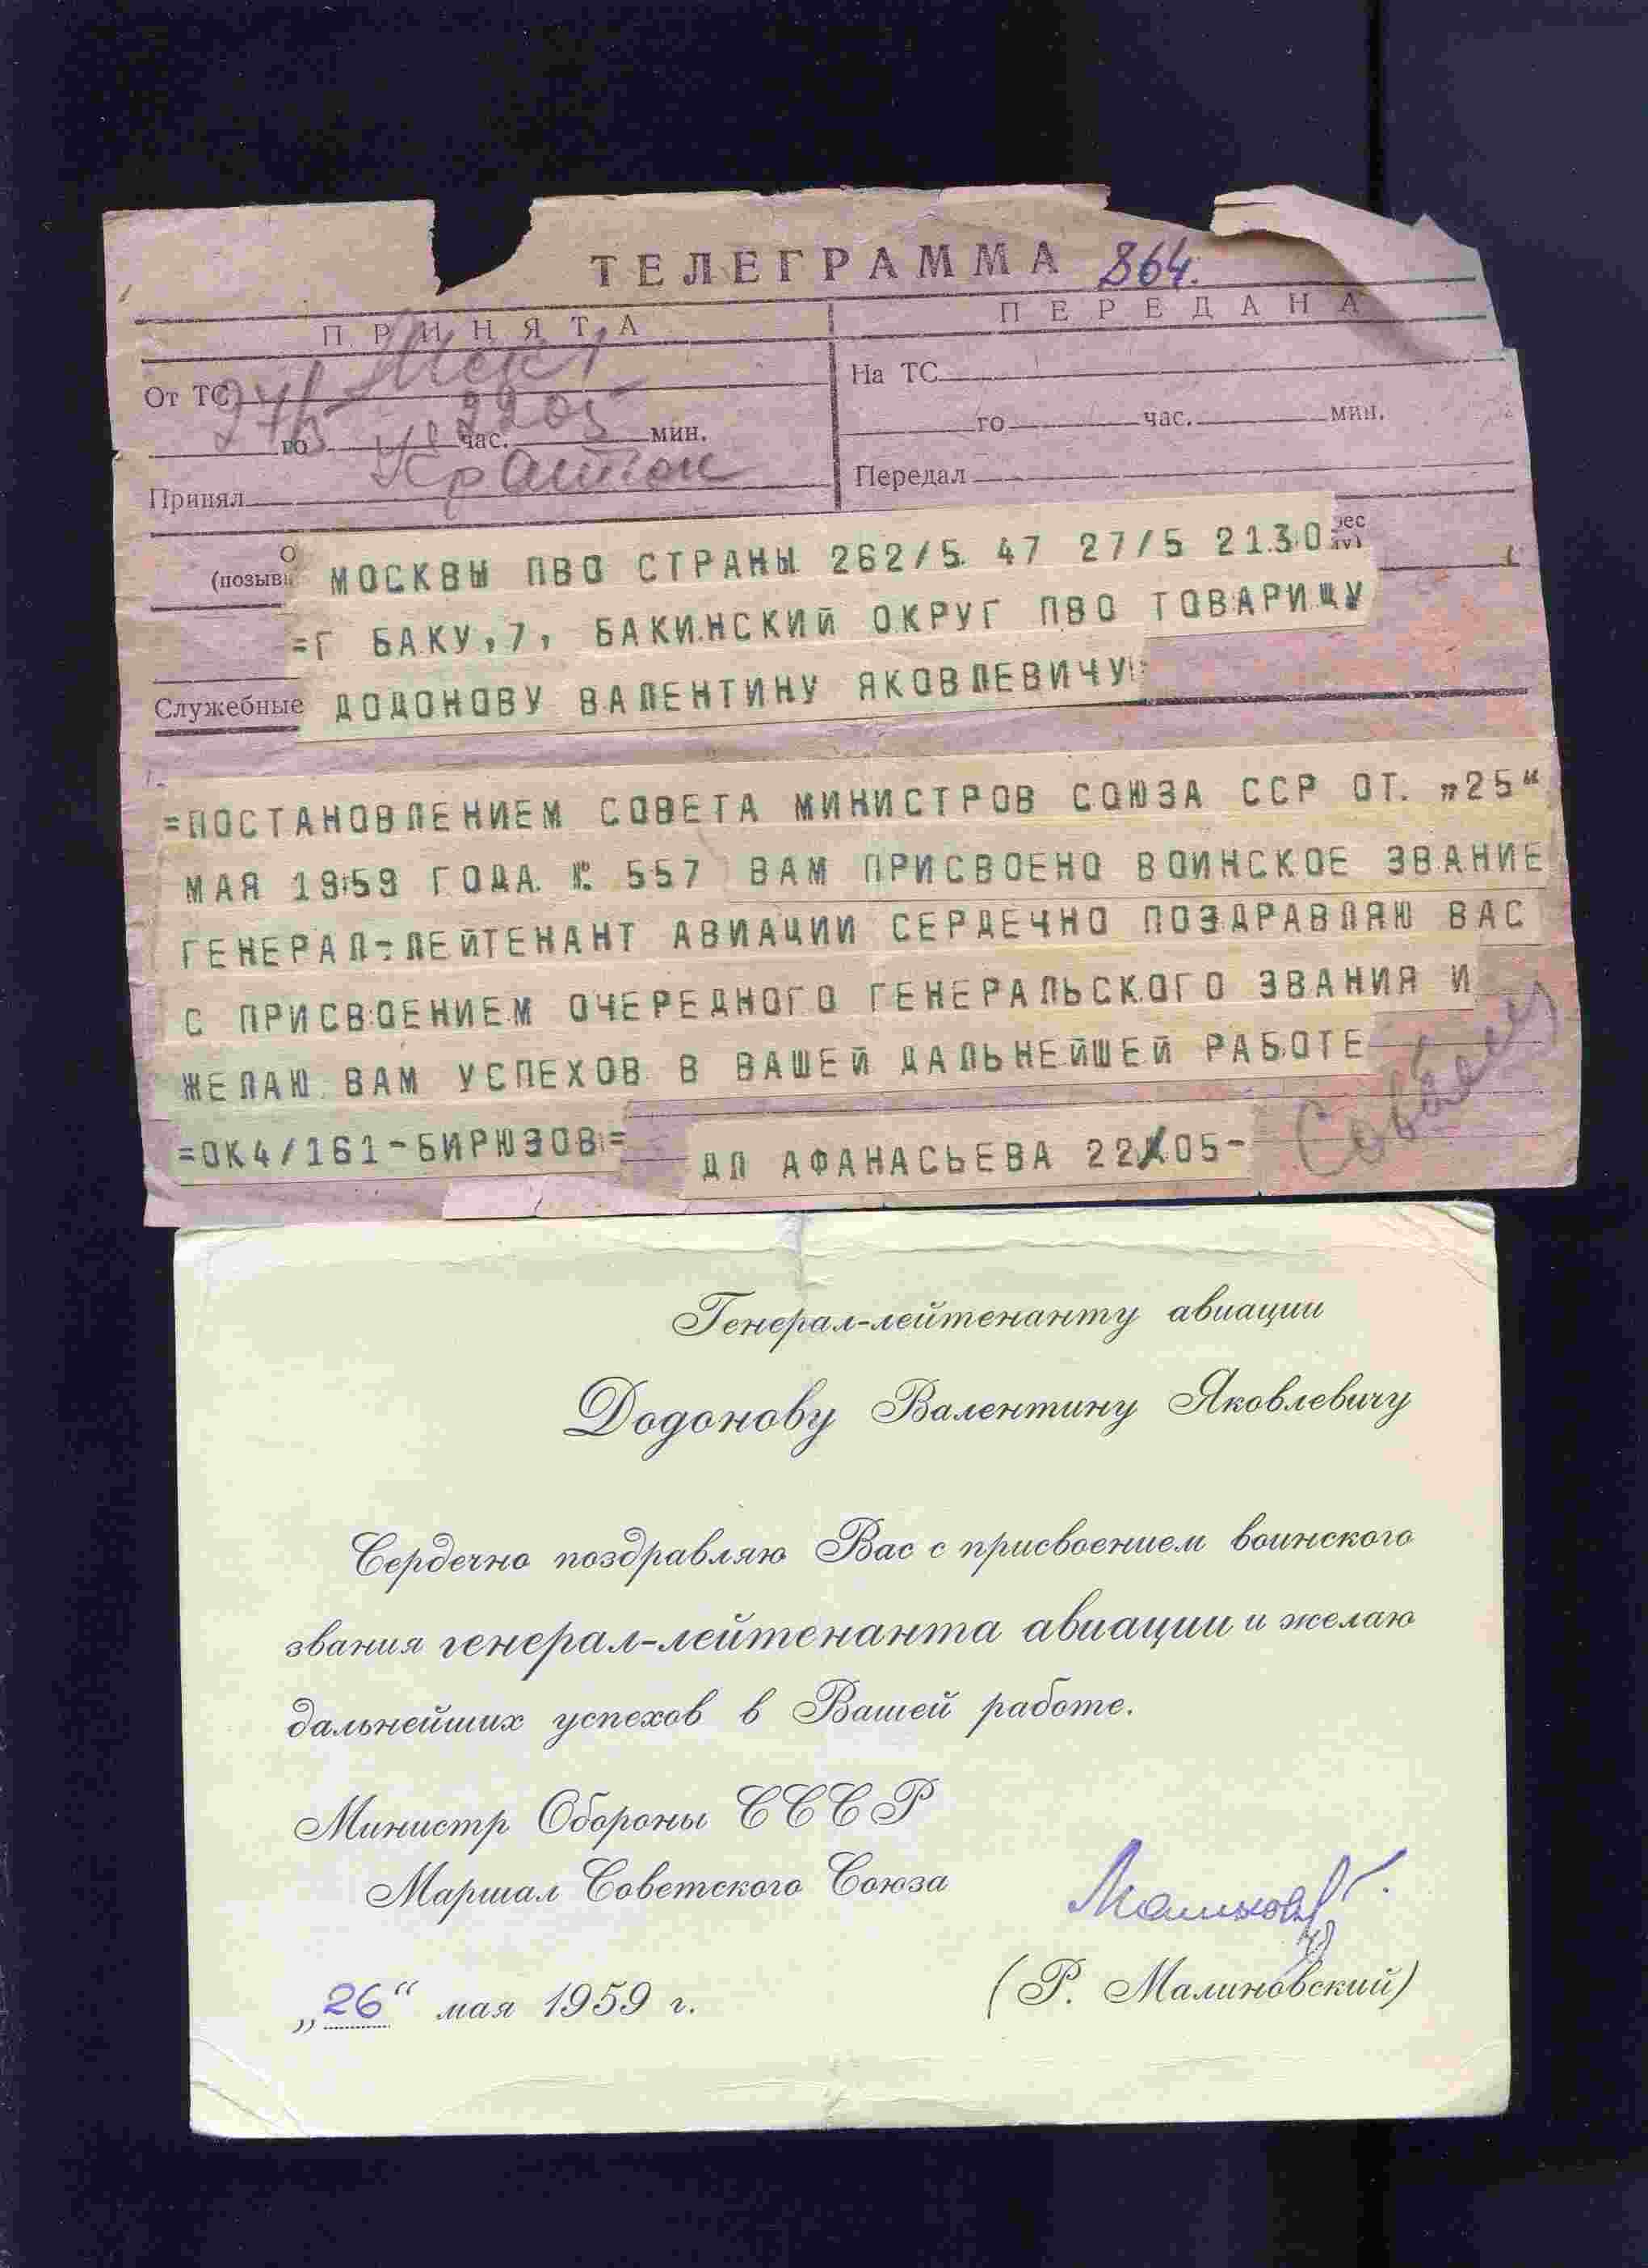 ТЕЛЕГРАММА 864.
ПРИНЯТА
ПЕРЕДАНА
От ТС
27/5
го 2205 час. мин.
Принял
На ТС
го час. мин.
Передал
(позыв
МОСКВЫ ПВО СТРАНЫ 262/5 47 27/5 21.30
=Г БАКУ,7, БАКИНСКИЙ ОКРУГ ПВО ТОВАРИЩУ
Служебные ДОДОНОВУ ВАЛЕНТИНУ ЯКОВЛЕВИЧУ
=ПОСТАНОВЛЕНИЕМ СОВЕТА МИНИСТРОВ СОЮЗА ССР ОТ. „25“
МАЯ 1959 ГОДА. № 557 ВАМ ПРИСВОЕНО ВОИНСКОЕ ЗВАНИЕ
ГЕНЕРАЛ-ЛЕЙТЕНАНТ АВИАЦИИ СЕРДЕЧНО ПОЗДРАВЛЯЮ ВАС
С ПРИСВОЕНИЕМ ОЧЕРЕДНОГО ГЕНЕРАЛЬСКОГО ЗВАНИЯ И
ЖЕЛАЮ ВАМ УСПЕХОВ В ВАШЕЙ ДАЛЬНЕЙШЕЙ РАБОТЕ
=ОК4/161-БИРЮЗОВ= ДП АФАНАСЬЕВА 22 05-
Генерал-лейтенанту авиации
Додонову Валентину Яковлевичу
Сердечно поздравляю Вас с присвоением воинского
звания генерал-лейтенанта авиации и желаю
дальнейших успехов в Вашей работе.
Министр Обороны СССР
Маршал Советского Союза
(Р. Малиновский)
„26“ мая 1959 г.